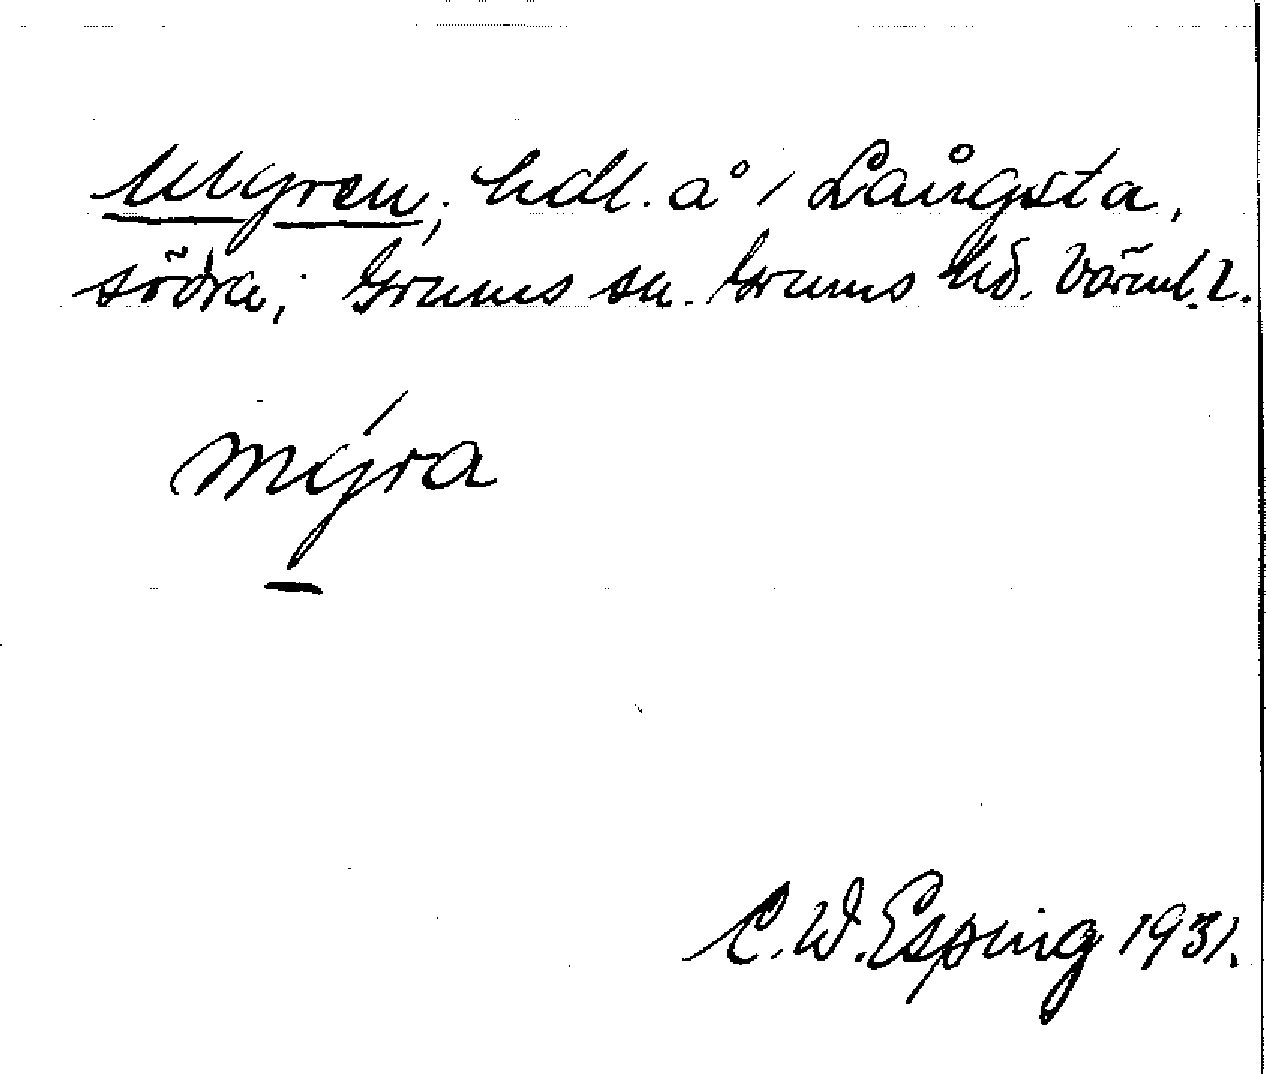 Myren, hdl. å 1 Långsta,
södra; Grums sn. Grums hd. Värml. l.
mýra
C. W. Esping 1931.